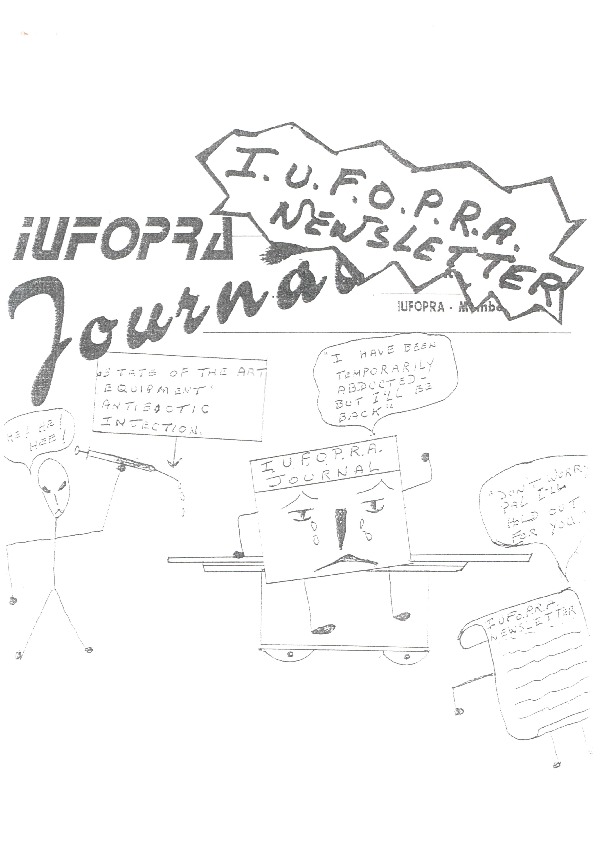 I.U.F.O.P.R.A.
NEWSLETTER
IUFOPRA
Journal
IUFOPRA -
"STATE OF THE ART
EQUIPMENT"
ANTISEPTIC
INJECTION.
HE! HE!
HEE!
"I HAVE BEEN
TEMPORARILY
ABDUCTED -
BUT I'LL BE
BACK"
I.U.F.O.P.R.A.
JOURNAL
"DON'T WORRY
PAL I'LL
HOLD OUT
FOR YOU.
I.U.F.O.P.R.A.
NEWSLETTER